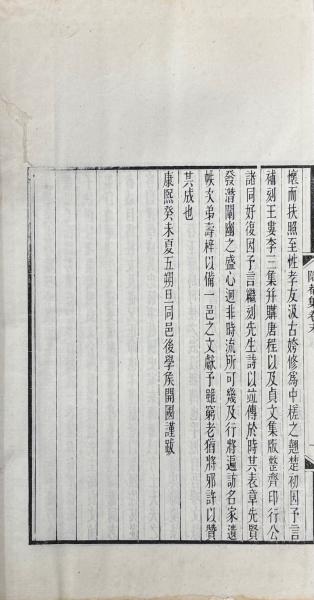 懷而扶照至性孝友汲古姱修爲中槎之翹楚初因予言
補刻王婁李三集并購唐程以及貞文集版整齊印行公
諸同好復因予言繼刻先生詩以竝傳於時其表章先賢
發潛闡幽之盛心迥非時流所可幾及行將遍訪名家遺
帙次第壽梓以備一邑之文獻予雖窮老猶將邪許以贊
其成也
康熙癸未夏五朔旦同邑後學矦開國謹跋
集卷末